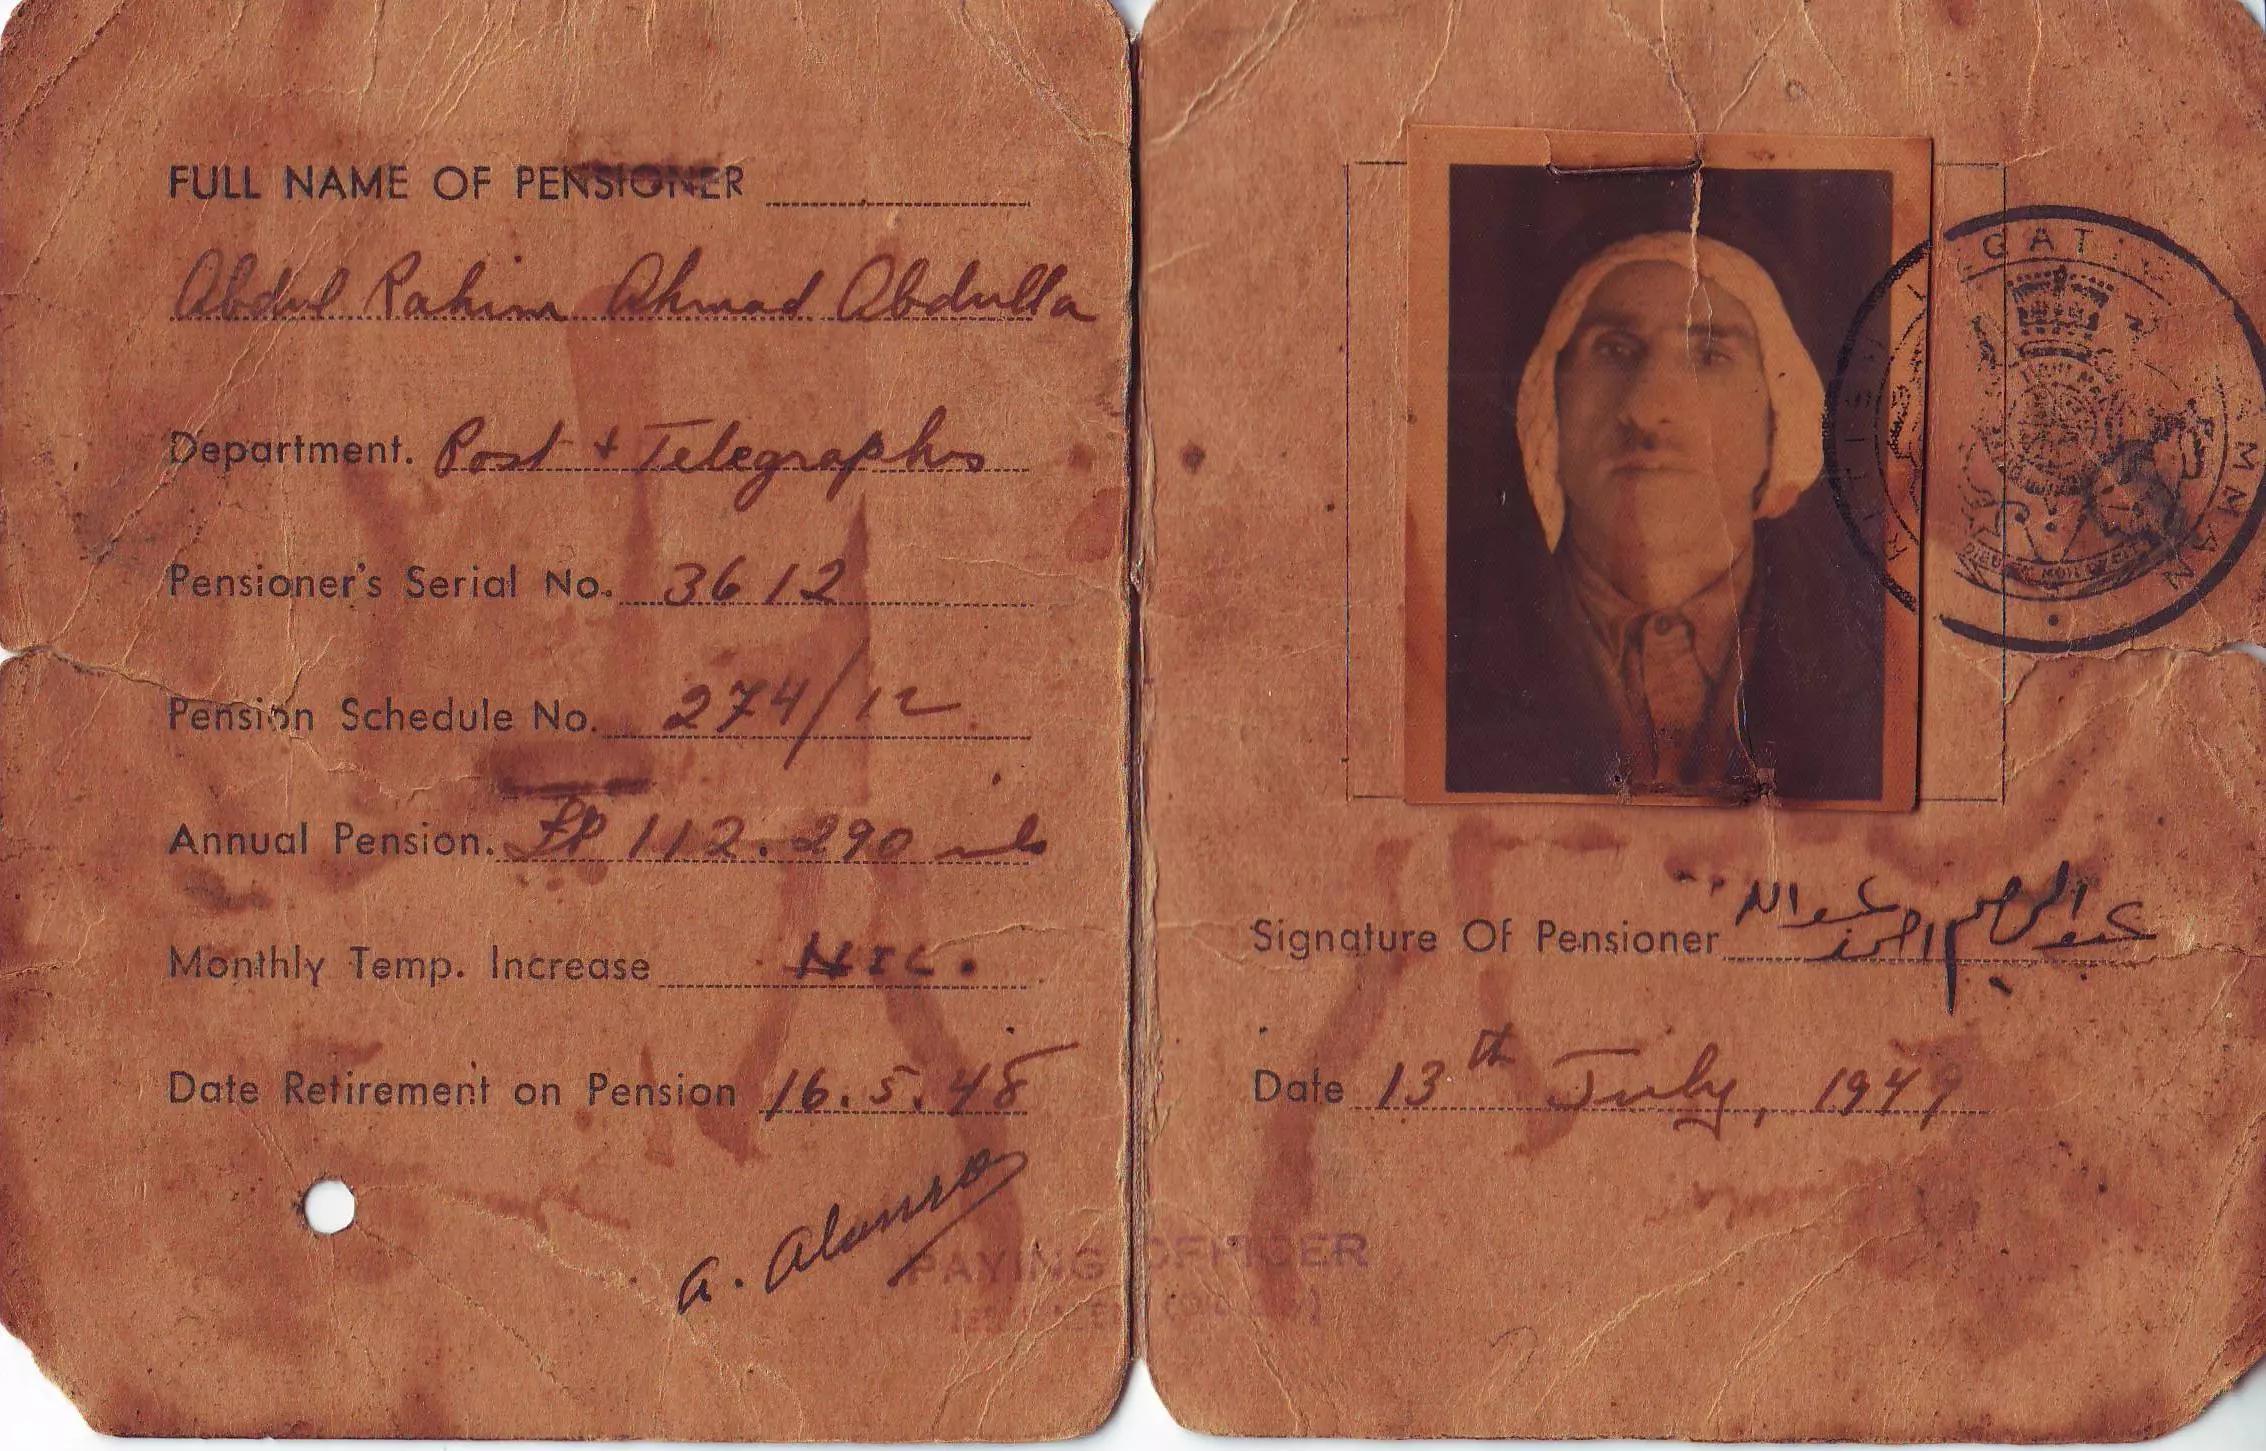 FULL NAME OF PENSIONER
Abdul Rahim Ahmad Abdulla
Department. Post + Telegraphs
Pensioner's Serial No. 3612
Pension Schedule No. 274/12
Annual Pension. £P 112.290 mls
Monthly Temp. Increase NIL.
Date Retirement on Pension 16.5.48
PAYING OFFICER
BRITISH LEGATION AMMAN
DIEU ET MON DROIT
Signature Of Pensioner عبد الرحيم احمد عبد الله
Date 13th July, 1949